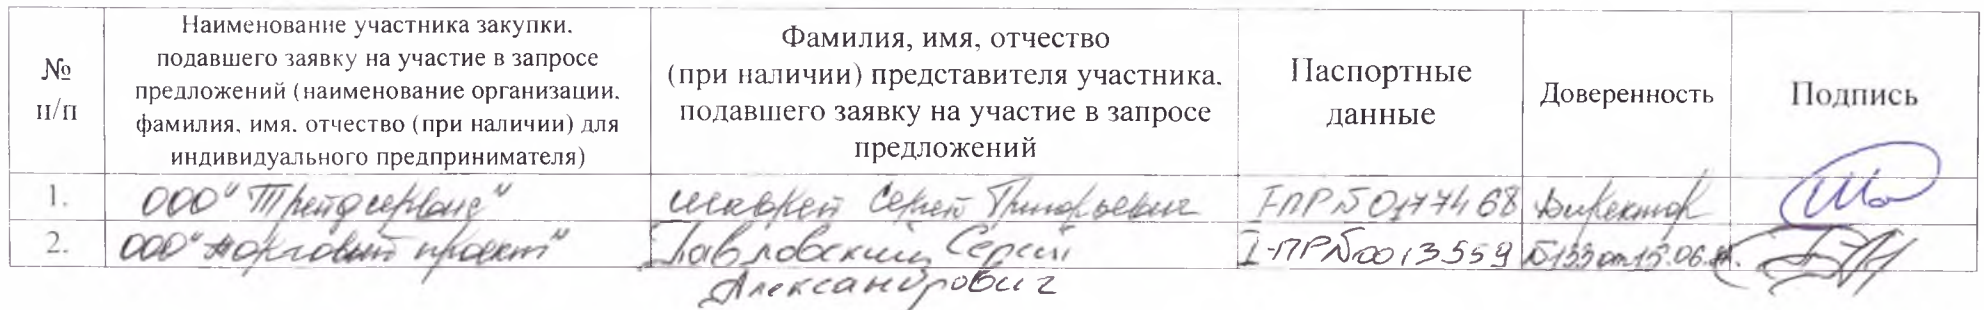 № п/п
Наименование участника закупки,
подавшего заявку на участие в запросе
предложений (наименование организации,
фамилия, имя, отчество (при наличии) для
индивидуального предпринимателя)
Фамилия, имя, отчество
(при наличии) представителя участника,
подавшего заявку на участие в запросе
предложений
Паспортные
данные
Доверенность
Подпись
1. ООО "Трейдсервис" Сергей Григорьевич I-ПР№0177468 Директор
2. ООО "Торговый проект" Павловский Сергей I-ПР№0013559 №133 от 15.06.
Александрович